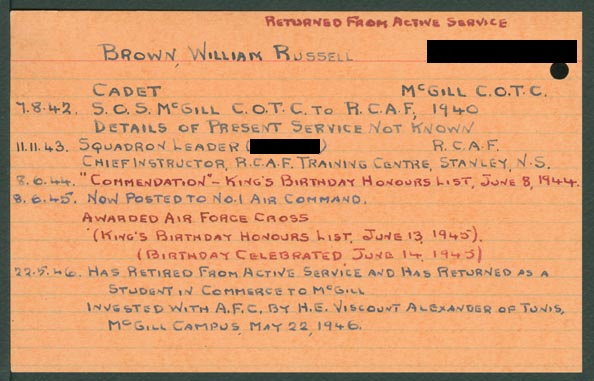 RETURNED FROM ACTIVE SERVICE
BROWN, WILLIAM RUSSELL
CADET McGILL C.O.T.C.
7.8.42. S.O.S. McGILL C.O.T.C. TO R.C.A.F., 1940
DETAILS OF PRESENT SERVICE NOT KNOWN
11.11.43. SQUADRON LEADER ( ) R.C.A.F.
CHIEF INSTRUCTOR, R.C.A.F. TRAINING CENTRE, STANLEY, N.S.
8.6.44. "COMMENDATION" - KING'S BIRTHDAY HONOURS LIST, JUNE 8, 1944.
8.6.45. NOW POSTED TO NO.1 AIR COMMAND.
AWARDED AIR FORCE CROSS
(KING'S BIRTHDAY HONOURS LIST, JUNE 13, 1945).
(BIRTHDAY CELEBRATED, JUNE 14, 1945)
22.5.46. HAS RETIRED FROM ACTIVE SERVICE AND HAS RETURNED AS A
STUDENT IN COMMERCE TO McGILL
INVESTED WITH A.F.C. BY H.E. VISCOUNT ALEXANDER OF TUNIS,
McGILL CAMPUS, MAY 22, 1946.